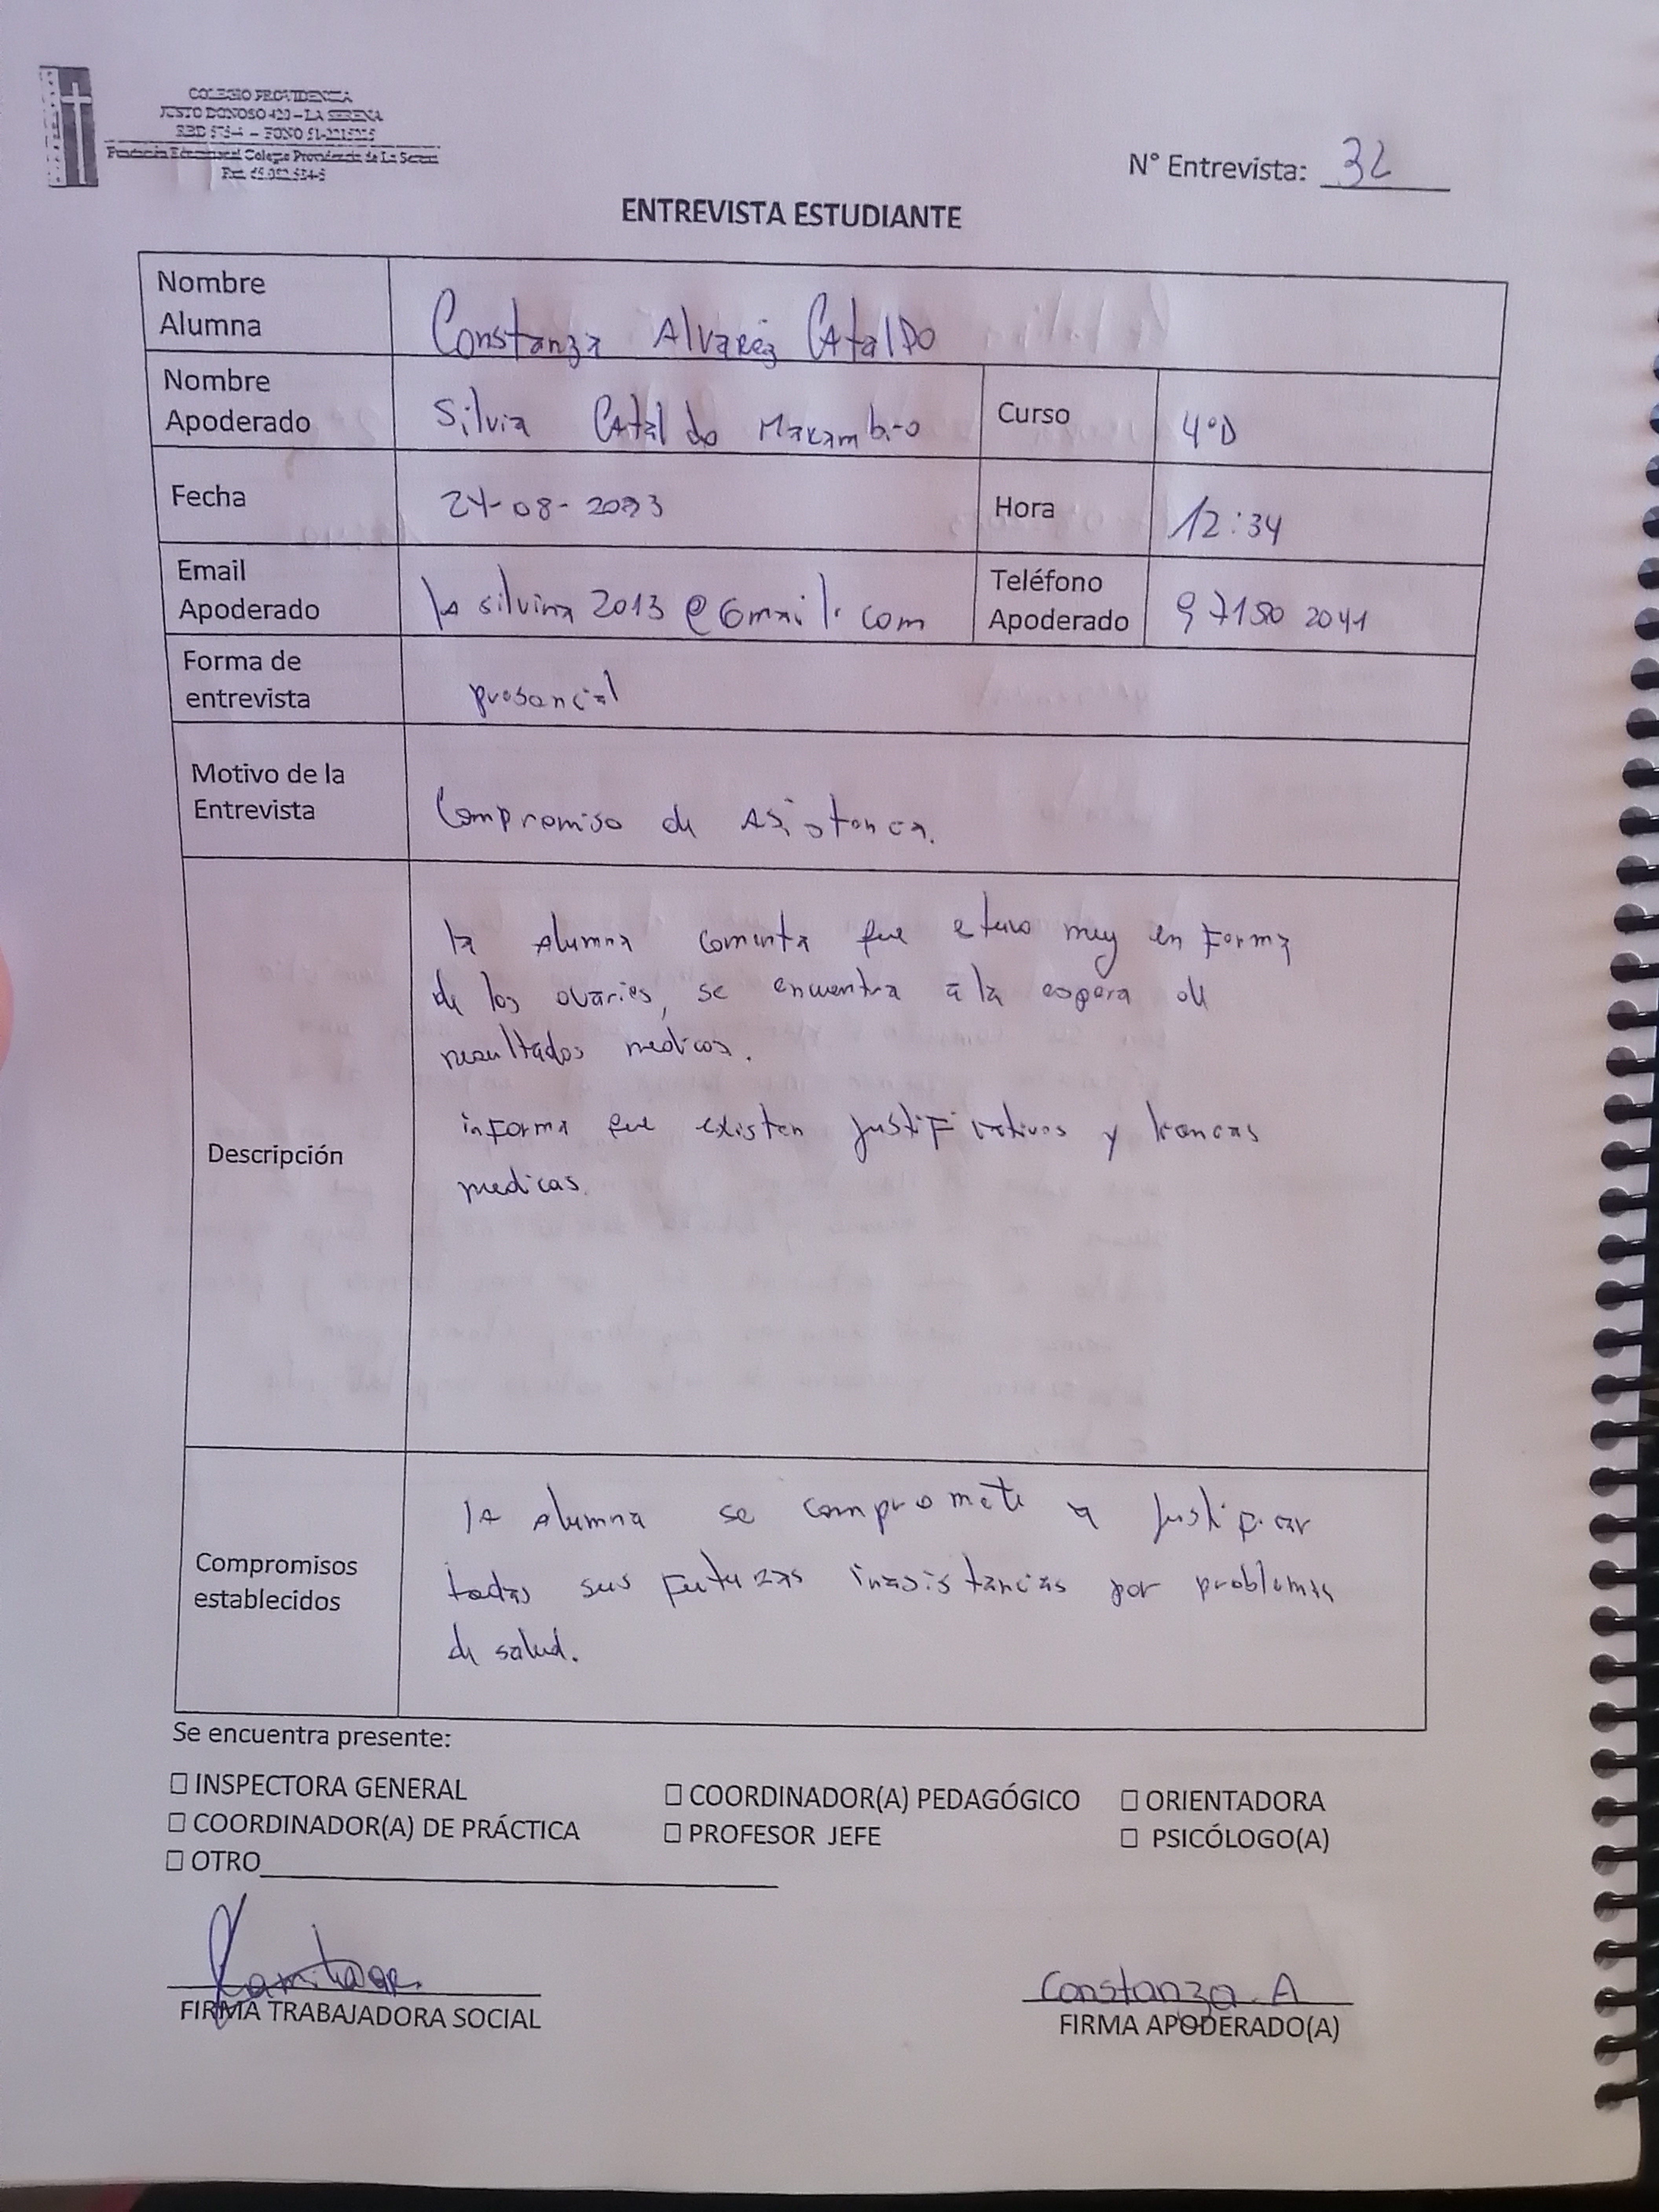 COLEGIO PROVIDENCIA
JUSTO DONOSO 420 – LA SERENA
RBD 575-4 – FONO 51-2215225
Fundación Educacional Colegio Providencia de La Serena
N° Entrevista: 32
ENTREVISTA ESTUDIANTE
Nombre
Alumna
Constanza Alvarez Cataldo
Nombre
Apoderado
Silvia Cataldo Marambio
Curso
4°D
Fecha
24-08-2023
Hora
12:34
Email
Apoderado
la silvina 2013 @ Gmail. com
Teléfono
Apoderado
9 7150 2041
Forma de
entrevista
presencial
Motivo de la
Entrevista
Compromiso de Asistencia.
Descripción
la Alumna comenta que etuvo muy enForma
de los ovarios, se encuentra a la espera de
resultados medicos.
informa que existen justificativos y licencias
medicas.
Compromisos
establecidos
la alumna se compromete a justificar
todas sus Futuras inasistencias por problemas
de salud.
Se encuentra presente:
☐ INSPECTORA GENERAL ☐ COORDINADOR(A) PEDAGÓGICO ☐ ORIENTADORA
☐ COORDINADOR(A) DE PRÁCTICA ☐ PROFESOR JEFE ☐ PSICÓLOGO(A)
☐ OTRO
FIRMA TRABAJADORA SOCIAL
Constanza A
FIRMA APODERADO(A)